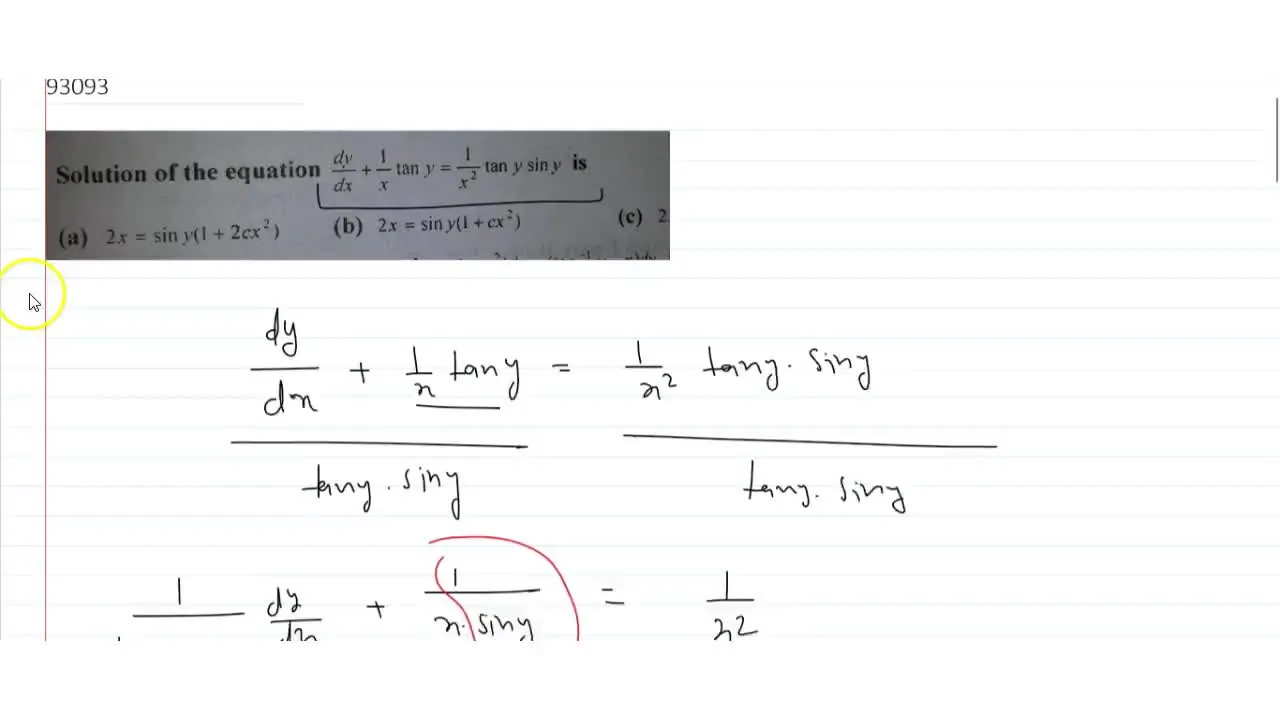 93093
Solution of the equation dy/dx + 1/x tan y = 1/x² tan y sin y is
(a) 2x = sin y(1 + 2cx²) (b) 2x = sin y(1 + cx²) (c) 2
dy/dx + 1/x tan y = 1/x² tan y . sin y
tan y . sin y tan y . sin y
1 dy/dx + 1/x. sin y = 1/x²